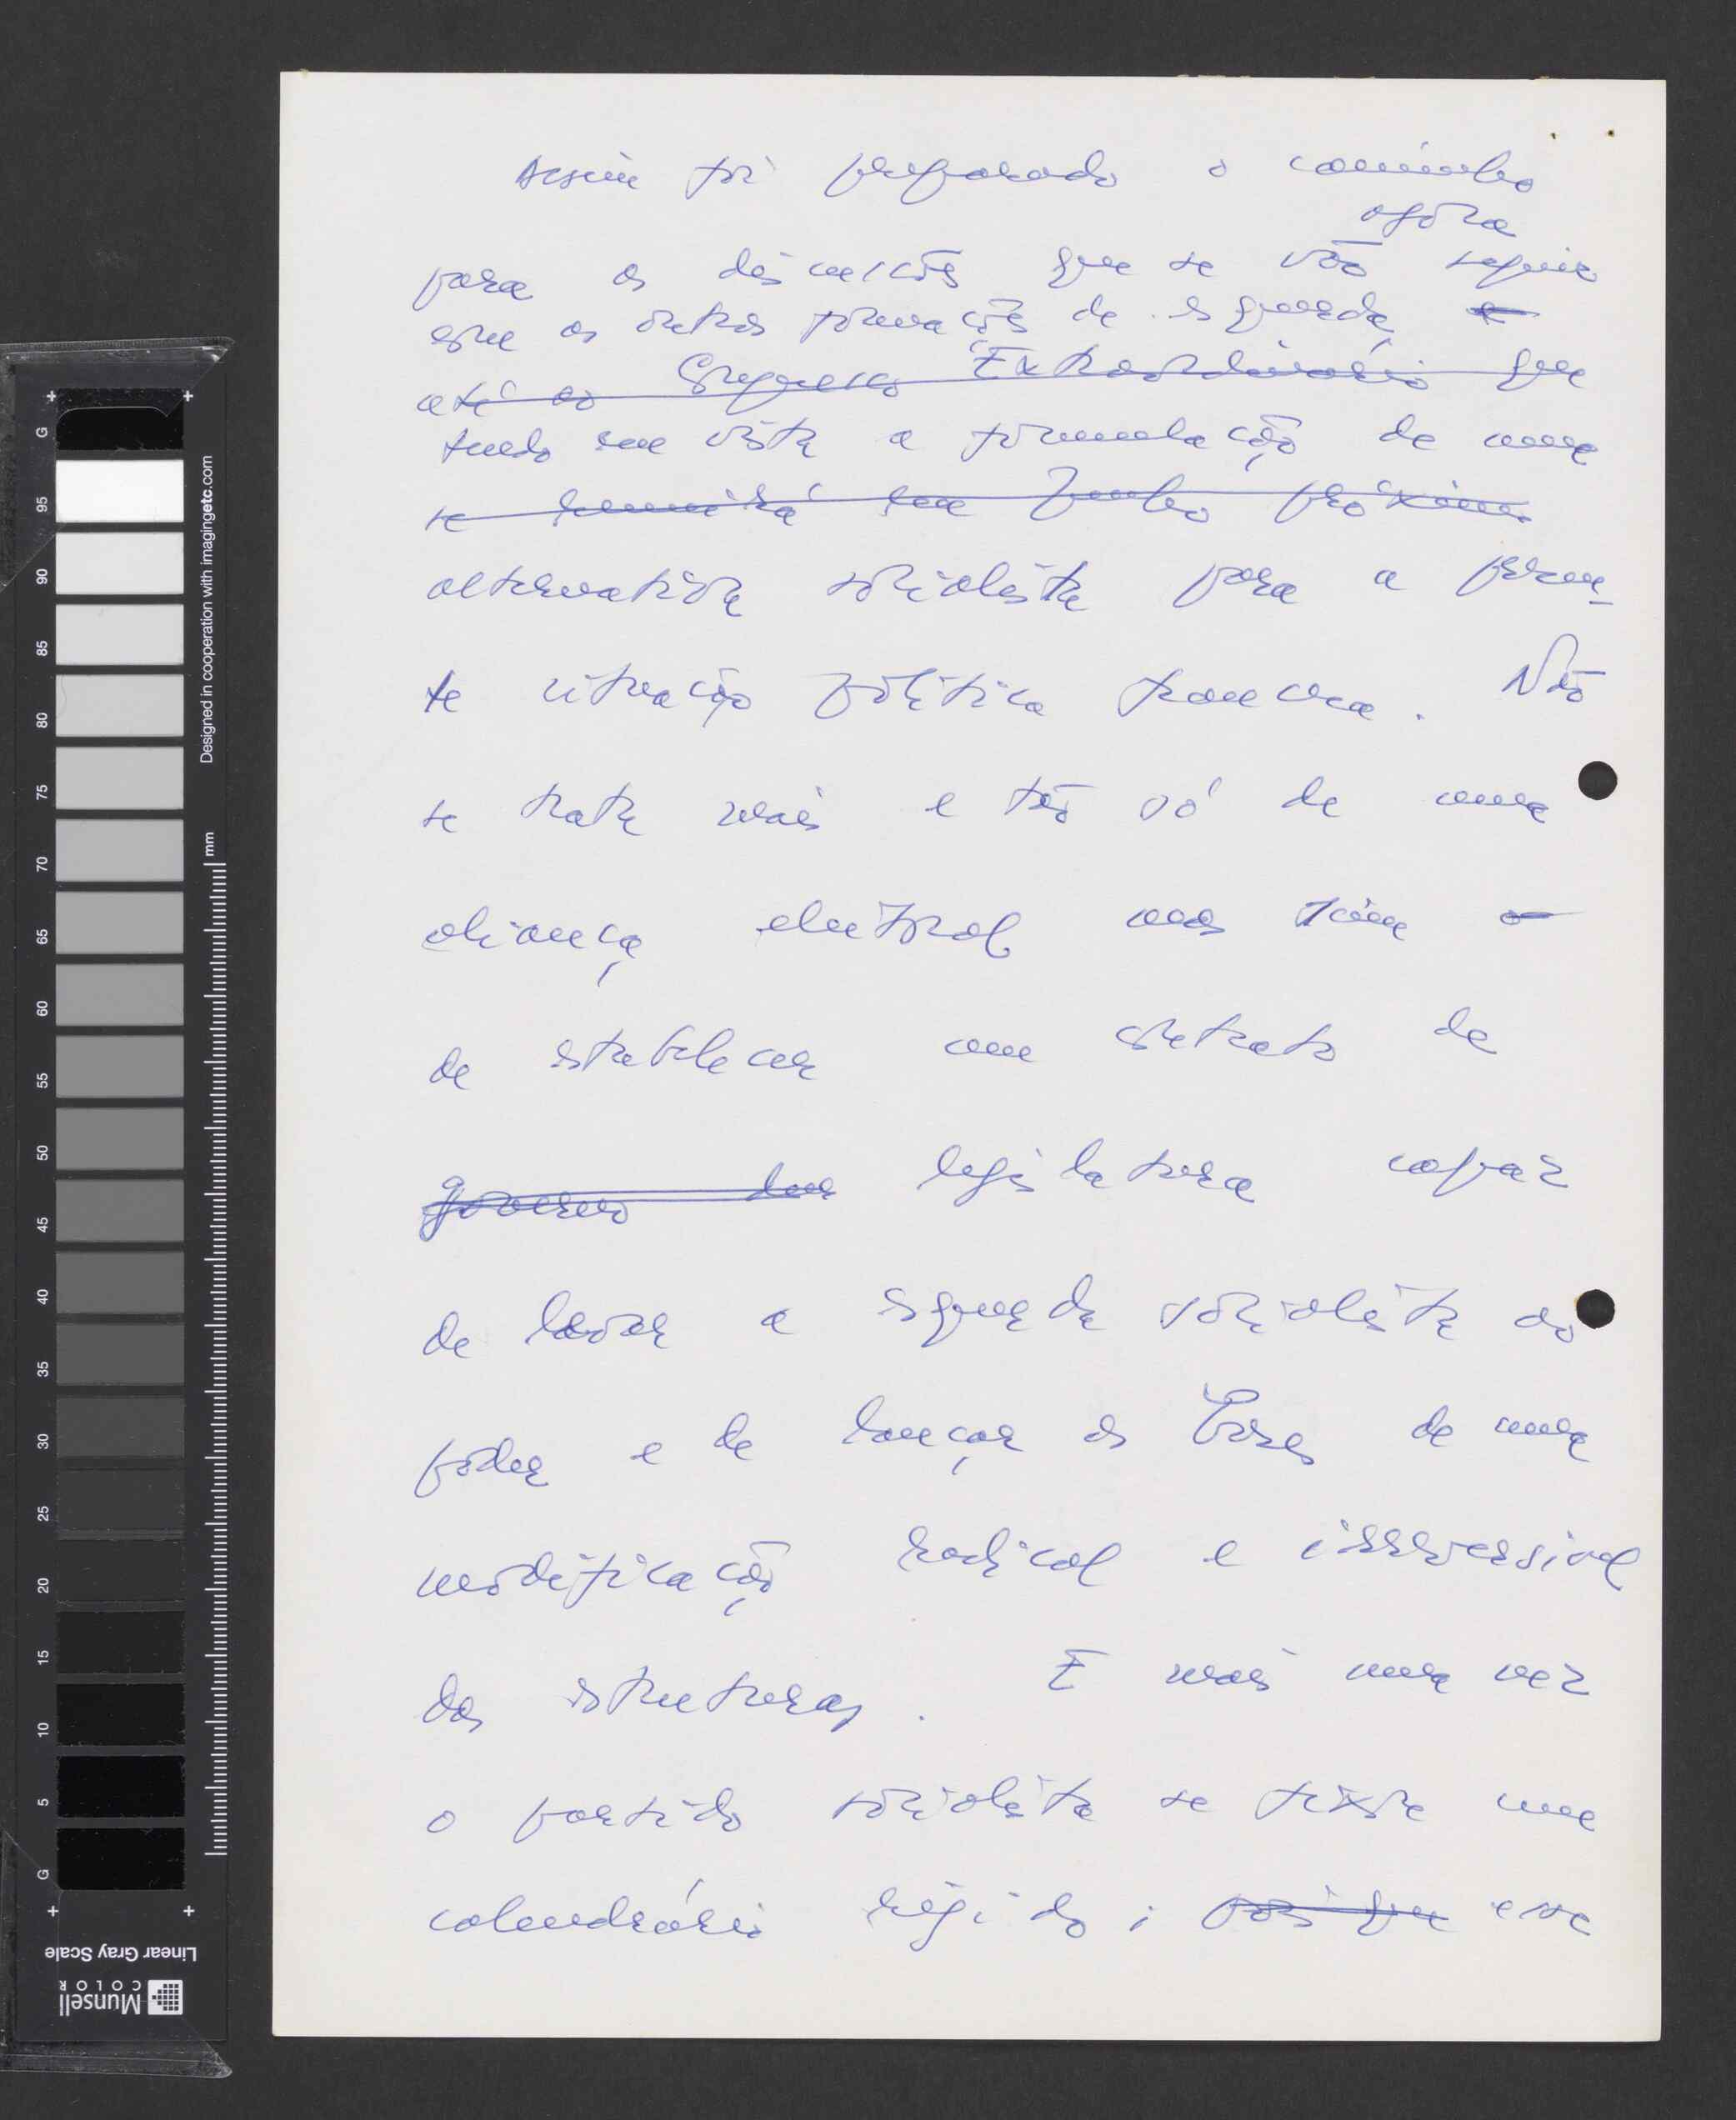 Assim foi preparado o caminho
agora
para as discussões que se vão seguir
com as outras formações de esquerda e
até ao Congresso Extraordinário que
tendo em vista a formulação de uma
se reunirá em Junho próximo
alternativa socialista para a presen-
te situação política francesa. Não
se trata mais e tão só de uma
aliança eleitoral mas sim o
de estabelecer um contrato de
governo legislatura capaz
de levar a esquerda socialista ao
poder e de lançar as bases de uma
modificação radical e irreversivel
das estruturas. E mais uma vez
o partido socialista se fixou um
calendário rígido; pois que
G 5 10 15 20 25 30 35 40 45 50 55 60 65 70 75 80 85 90 95 G
mm
Designed in cooperation with imagingetc.com
Munsell
COLOR
Linear Gray Scale